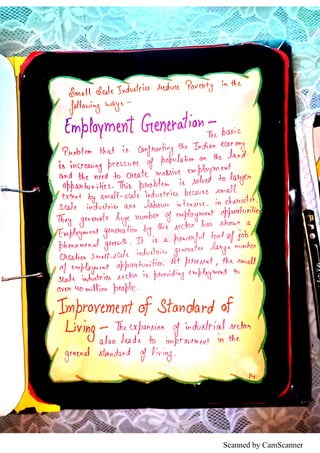 Small Scale Industries reduce Poverty in the
following ways -
Employment Generation -
The basic
Problem that is confronting the Indian economy
is increasing pressure of population on the land
and the need to create massive employment
opportunities. This problem is solved to larger
extent by small-scale industries because small
scale industries are labour intensive in character.
They generate huge number of employment opportunities.
Employment generation by this sector has shown a
phenomenal growth. It is a powerful tool of job
creation small-scale industries generates large number
of employment opportunities. At present, the small
scale industries sector is providing employment to
over 40 million people.
Improvement of Standard of
Living - The expansion of industrial sector
also leads to improvement in the
general standard of living.
14
Scanned by CamScanner